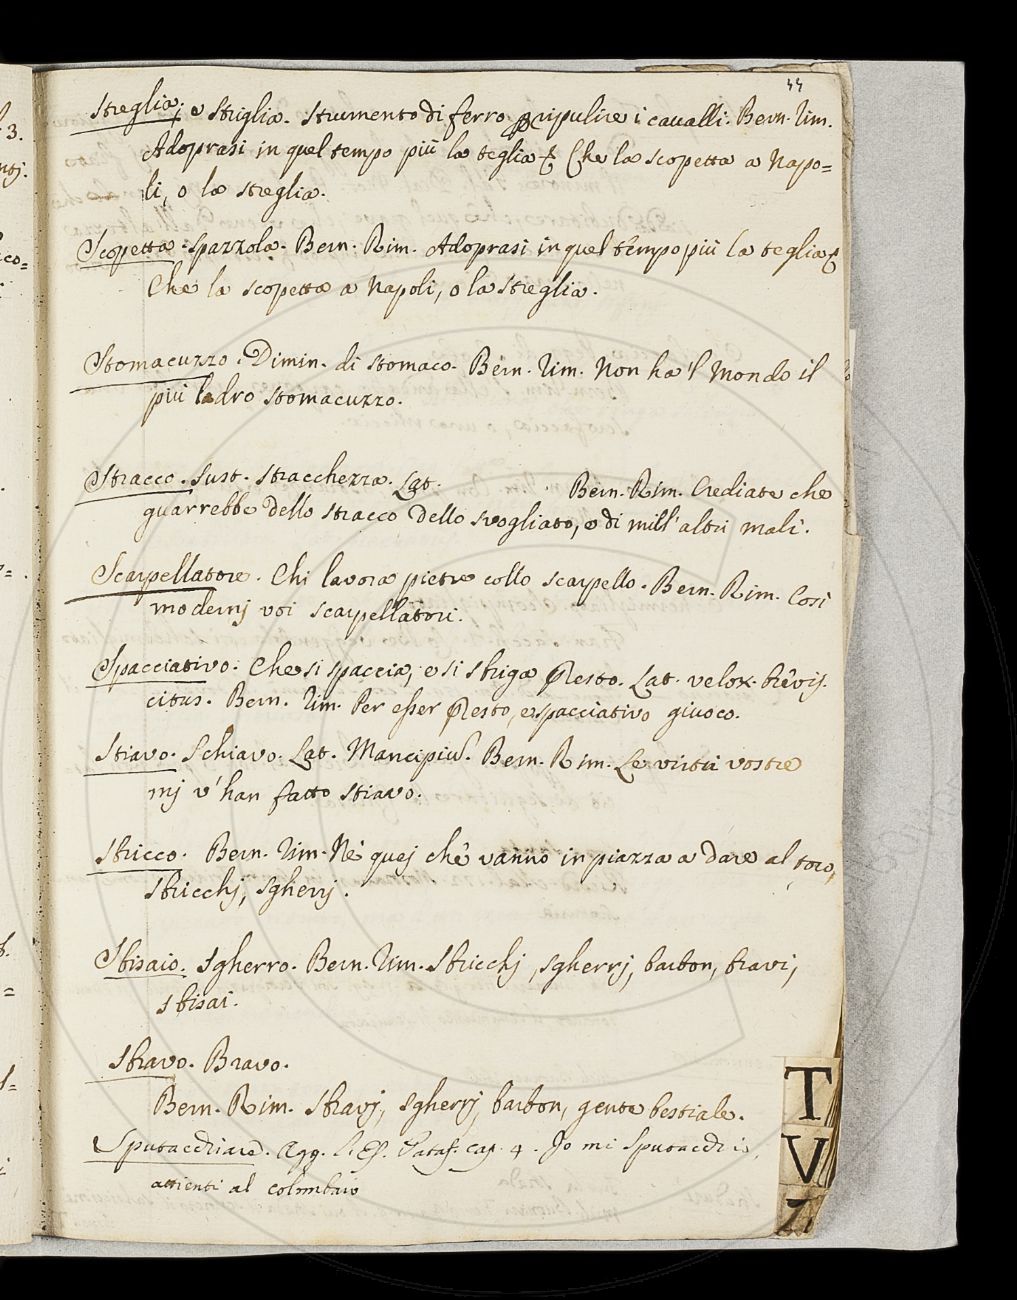 44
Streglia, e Striglia. Strumento di ferro p ripulire i cavalli. Bern. Rim.
Adoprasi in quel tempo più la teglia Che la scopetta a Napo=
li, o la streglia.
Scopetta. Spazzola. Bern. Rim. Adoprasi in quel tempo più la teglia
Che la scopetta a Napoli, o la streglia.
Stomacuzzo. Dimin. di stomaco. Bern. Rim. Non ha 'l Mondo il
più ladro stomacuzzo.
Stracco. Sust. Stracchezza. Lat. Bern. Rim. Crediate che
guarrebbe dello stracco Dello svogliato, e di mill' altri mali.
Scarpellatore. Chi lavora pietre collo scarpello. Bern. Rim. Così
moderni voi scarpellatori.
Spacciativo. Che si spaccia, e si sbriga presto. Lat. velox. brevis.
citus. Bern. Rim. Per esser presto, e spacciativo giuoco.
Stiavo. Schiavo. Lat. Mancipiu. Bern. Rim. Le virtù vostre
mj v' han fatto stiavo.
Sbricco. Bern. Rim. Nè quej che vanno in piazza a dare al toro,
sbricchj, sgherrj.
Sbisaio. Sgherro. Bern. Rim. Sbricchj, sgherrj, barbon, bravi,
sbisai.
Sbravo. Bravo.
Bern. Rim. Sbravj, sgherrj, barbon, gente bestiale.
Sputacchiare. Agg. Pataf. cap. 4. Io mi sputacchio,
attienti al colombaio
T
V
Z